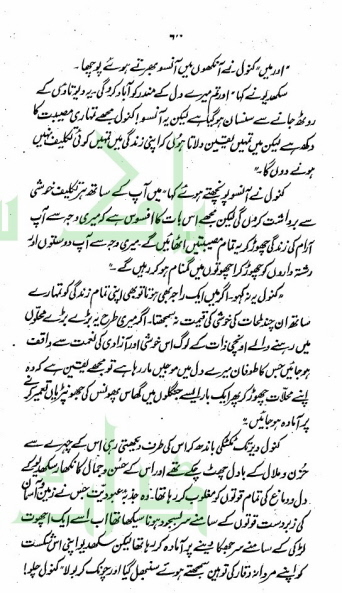 ۶۰
"اور میں" کنول نے آنکھوں میں آنسو بھرتے ہوئے پوچھا۔
سکھدیو نے کہا "اور تم میرے دل کے مندر کو آباد کرو گی۔ یہ دیوتا دی کے
روٹھ جانے سے سنسان ہو گیا ہے لیکن یہ آنسو! کنول مجھے تمہاری مصیبت کا
دکھ ہے لیکن میں تمہیں یقین دلاتا ہوں کہ اپنی زندگی میں تمہیں کوئی تکلیف نہیں
ہونے دوں گا۔"
کنول نے آنسو پونچھتے ہوئے کہا "میں آپ کے ساتھ ہر تکلیف خوشی
سے برداشت کروں گی لیکن مجھے اس بات کا افسوس ہے کہ میری وجہ سے آپ
آرام کی زندگی چھوڑ کر یہ تمام مصیبتیں اٹھائیں گے۔ میری وجہ سے آپ دوستوں اور
رشتہ داروں کو چھوڑ کر اچھوتوں میں گمنام ہو کر رہیں گے۔"
"کنول یہ نہ کہو۔ اگر میں ایک راجہ بھی ہوتا تو بھی اپنی تمام زندگی کو تمہارے
ساتھ ان چند لمحات کی خوشی کی قیمت نہ سمجھتا۔ اگر میری طرح یہ بڑے بڑے محلوں
میں رہنے والے اونچی ذات کے لوگ اس خوشی اور آزادی کی نعمت سے واقف
ہو جائیں جس کا طوفان میرے دل میں موجیں مار رہا ہے تو مجھے یقین ہے کہ وہ
اپنے محلات چھوڑ کر پھر ایک بار ایسے جنگلوں میں گھاس پھونس کی جھونپڑیاں تعمیر کرنے
پر آمادہ ہو جائیں۔"
کنول دیر تک ٹکٹکی باندھ کر اس کی طرف دیکھتی رہی اس کے چہرے سے
حزن و ملال کے بادل چھٹ چکے تھے اور اس کے حسن و جمال کا نکھار سکھدیو کے
دل و دماغ کی تمام قوتوں کو مغلوب کر رہا تھا۔ وہ جذبہ عبودیت جس نے زمین و آسمان
کی زبردست قوتوں کے سامنے سربسجود ہونا سیکھا تھا اب اسے ایک اچھوت
لڑکی کے سامنے سر جھکا دینے پر آمادہ کر رہا تھا لیکن سکھدیو اپنی اس شکست
کو اپنے مردانہ وقار کی توہین سمجھتے ہوئے سنبھل گیا اور چونک کر بولا "کنول چلو!